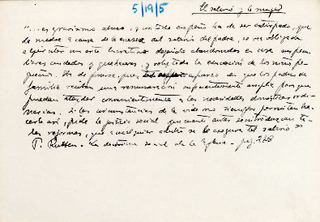 5/19/5
El salario y la mujer
"... es gravísimo abuso, y con todo empeño ha de ser extirpado, que
la madre, a causa de la escasez del salario del padre, se vea obligada
a ejercitar un arte lucrativo, dejando abandonados en casa sus pecu-
liares cuidados y quehaceres, y sobre todo la educación de los niños pe-
queños. Ha de ponerse, pues, todo esfuerzo en que los padres de
familia reciban una remuneración suficientemente amplia para que
puedan atender convenientemente a las necesidades domésticas ordi-
narias. Si las circunstancias de la vida no siempre permiten ha-
cerlo así, pide la justicia social que cuanto antes se introduzcan ta-
les reformas, que a cualquier obrero se le asegure tal salario"
P. Rutten. La doctrina social de la Iglesia. pag. 248